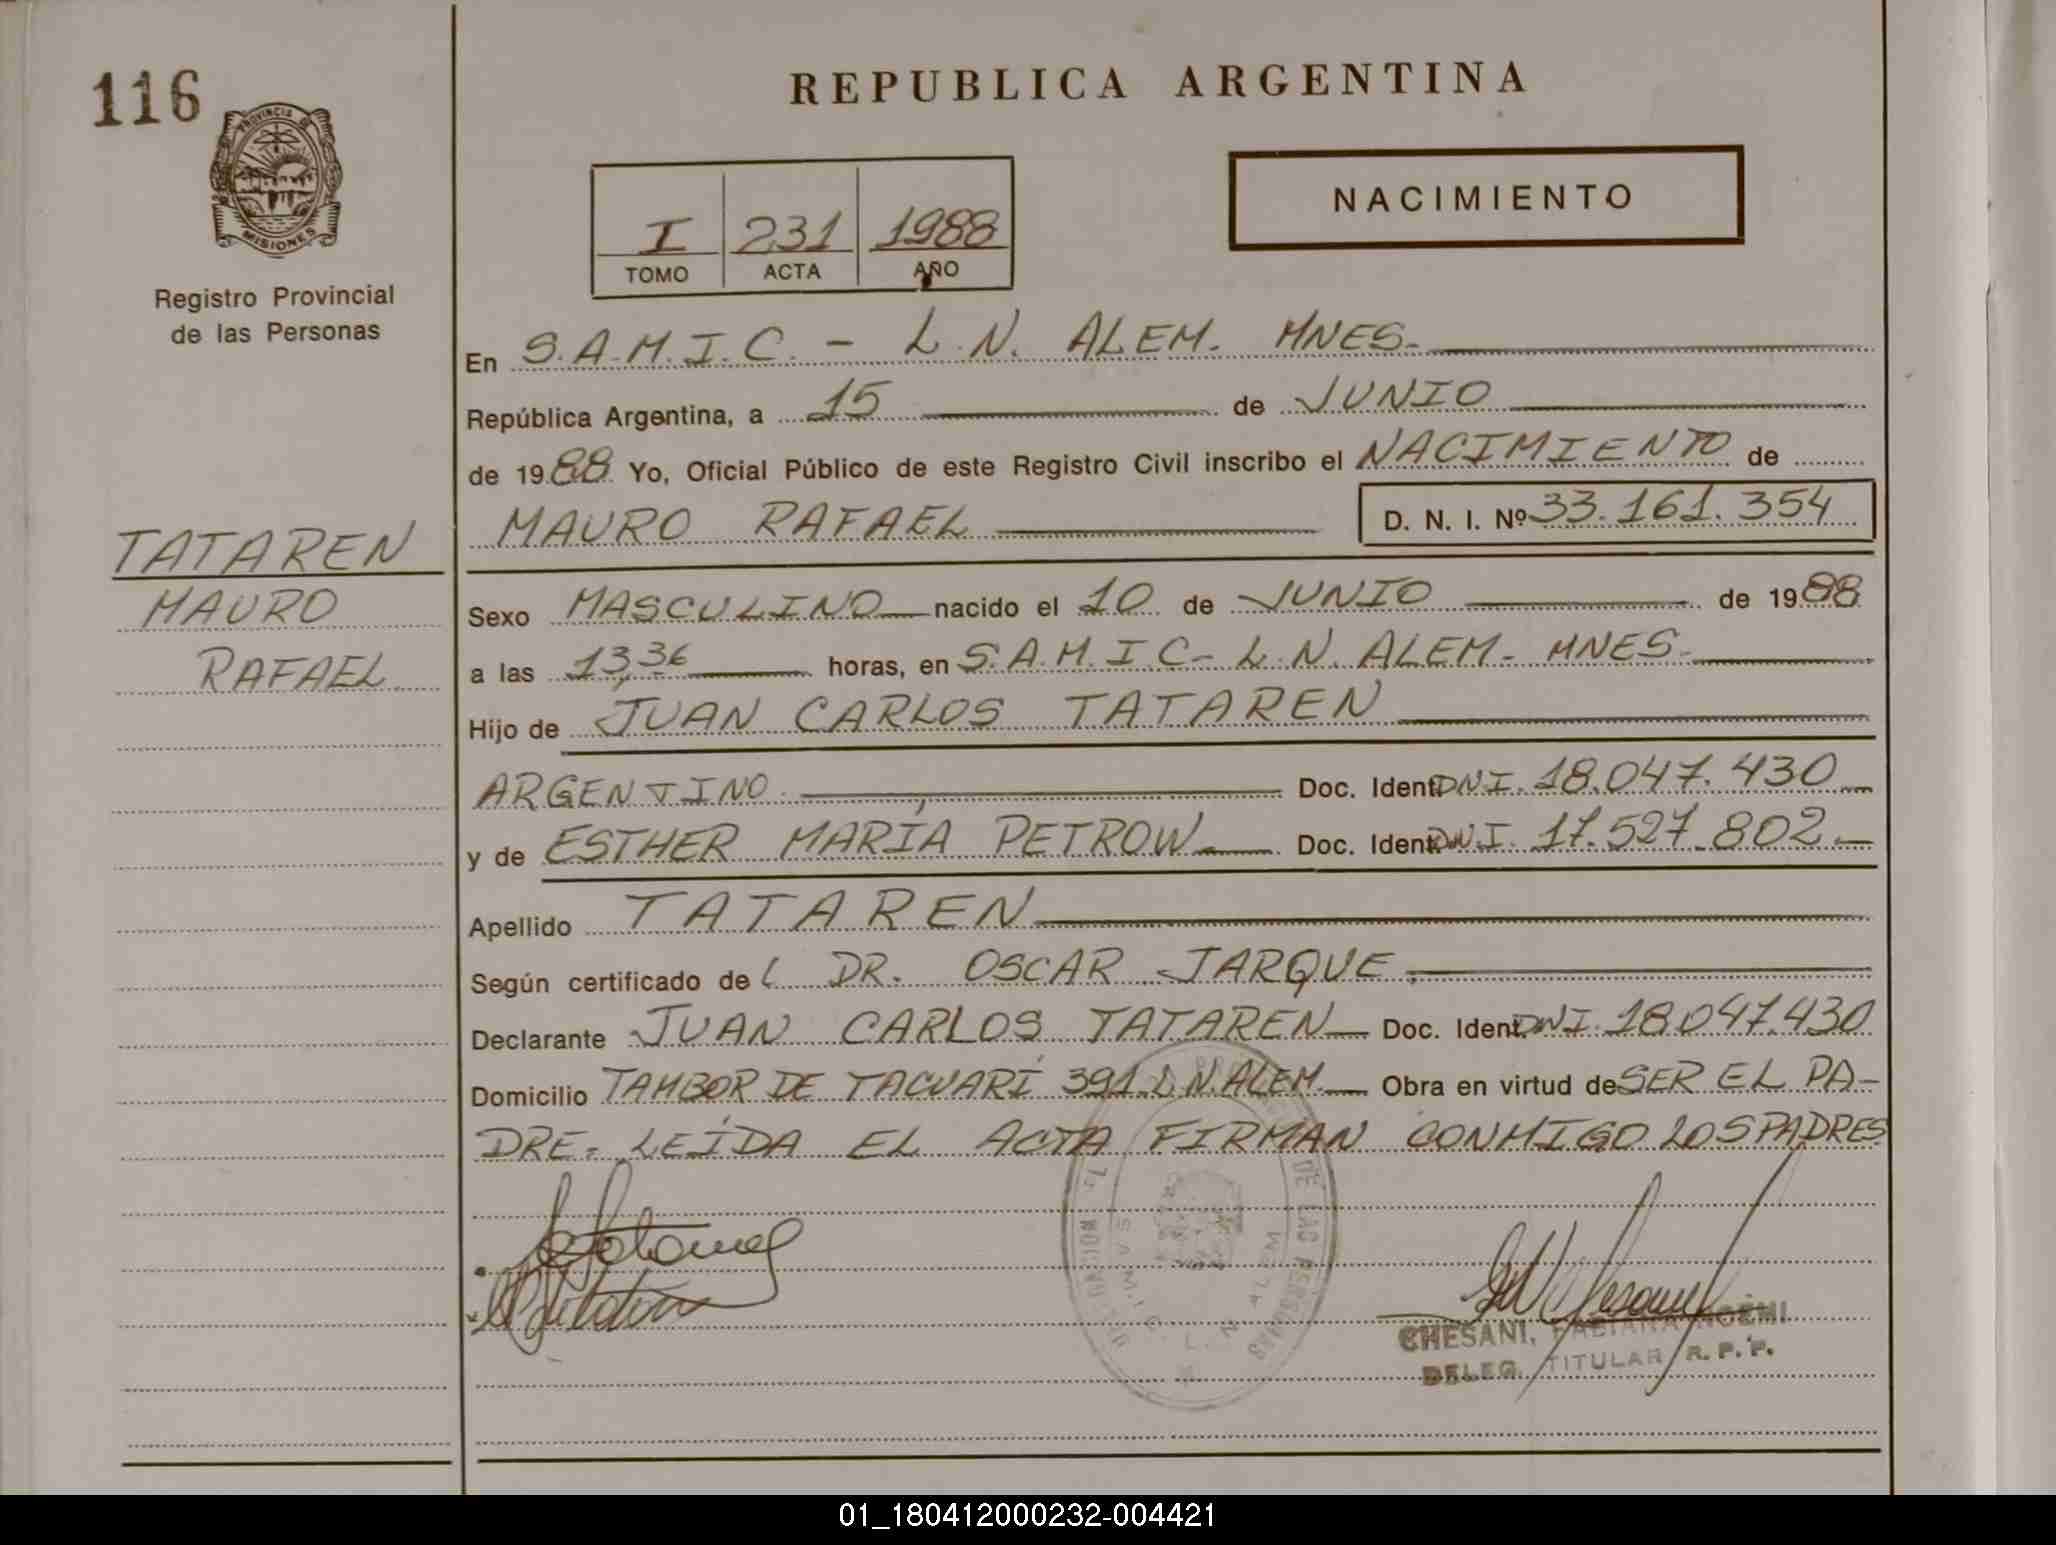 116
PROVINCIA DE
MISIONES
Registro Provincial
de las Personas
TATAREN
MAURO
RAFAEL
REPUBLICA ARGENTINA
I 231 1988
TOMO ACTA AÑO
NACIMIENTO
En S.A.M.I.C. - L.N. ALEM. MNES.
República Argentina, a 15 de JUNIO
de 1988 Yo, Oficial Público de este Registro Civil inscribo el NACIMIENTO de
MAURO RAFAEL D. N. I. Nº 33.161.354
Sexo MASCULINO nacido el 10 de JUNIO de 1988
a las 13,36 horas, en S.A.M.I.C- L.N. ALEM- MNES.
Hijo de JUAN CARLOS TATAREN
ARGENTINO Doc. Ident. DNI. 18.047.430
y de ESTHER MARÍA PETROW Doc. Ident. DNI. 17.527.802
Apellido TATAREN
Según certificado del DR. OSCAR JARQUE
Declarante JUAN CARLOS TATAREN Doc. Ident. DNI. 18.047.430
Domicilio TAMBOR DE TACUARÍ 391 L.N. ALEM. Obra en virtud de SER EL PA-
DRE. LEÍDA EL ACTA FIRMAN CONMIGO LOS PADRES
DE LAS PERSONAS
S.A.M.I.C. L. N. ALEM
CHESANI, FABIANA NOEMI
DELEG. TITULAR R. P. P.
01_180412000232-004421